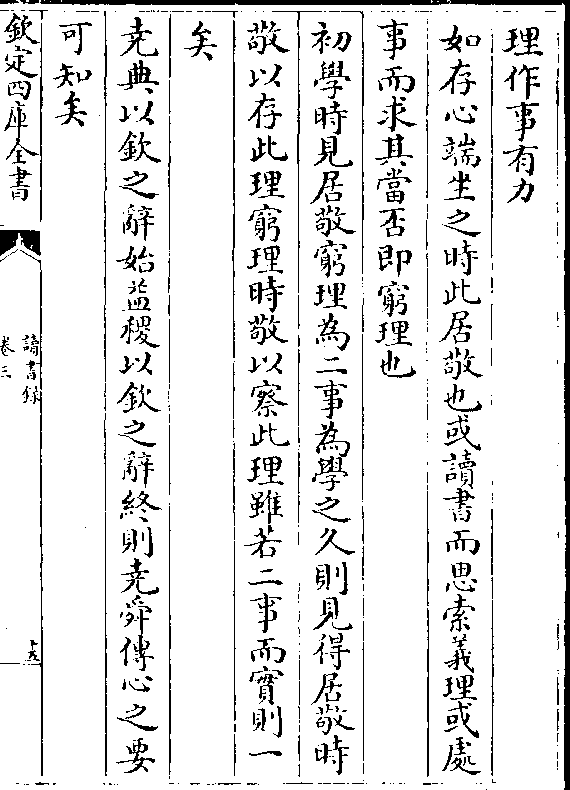 理作事有力
如存心端坐之時此居敬也或讀書而思索義理或處
事而求其當否即窮理也
初學時見居敬窮理為二事為學之久則見得居敬時
敬以存此理窮理時敬以察此理雖若二事而實則一
矣
堯典以欽之辭始益稷以欽之辭終則堯舜傳心之要
可知矣
欽定四庫全書
讀書録
卷三
十五